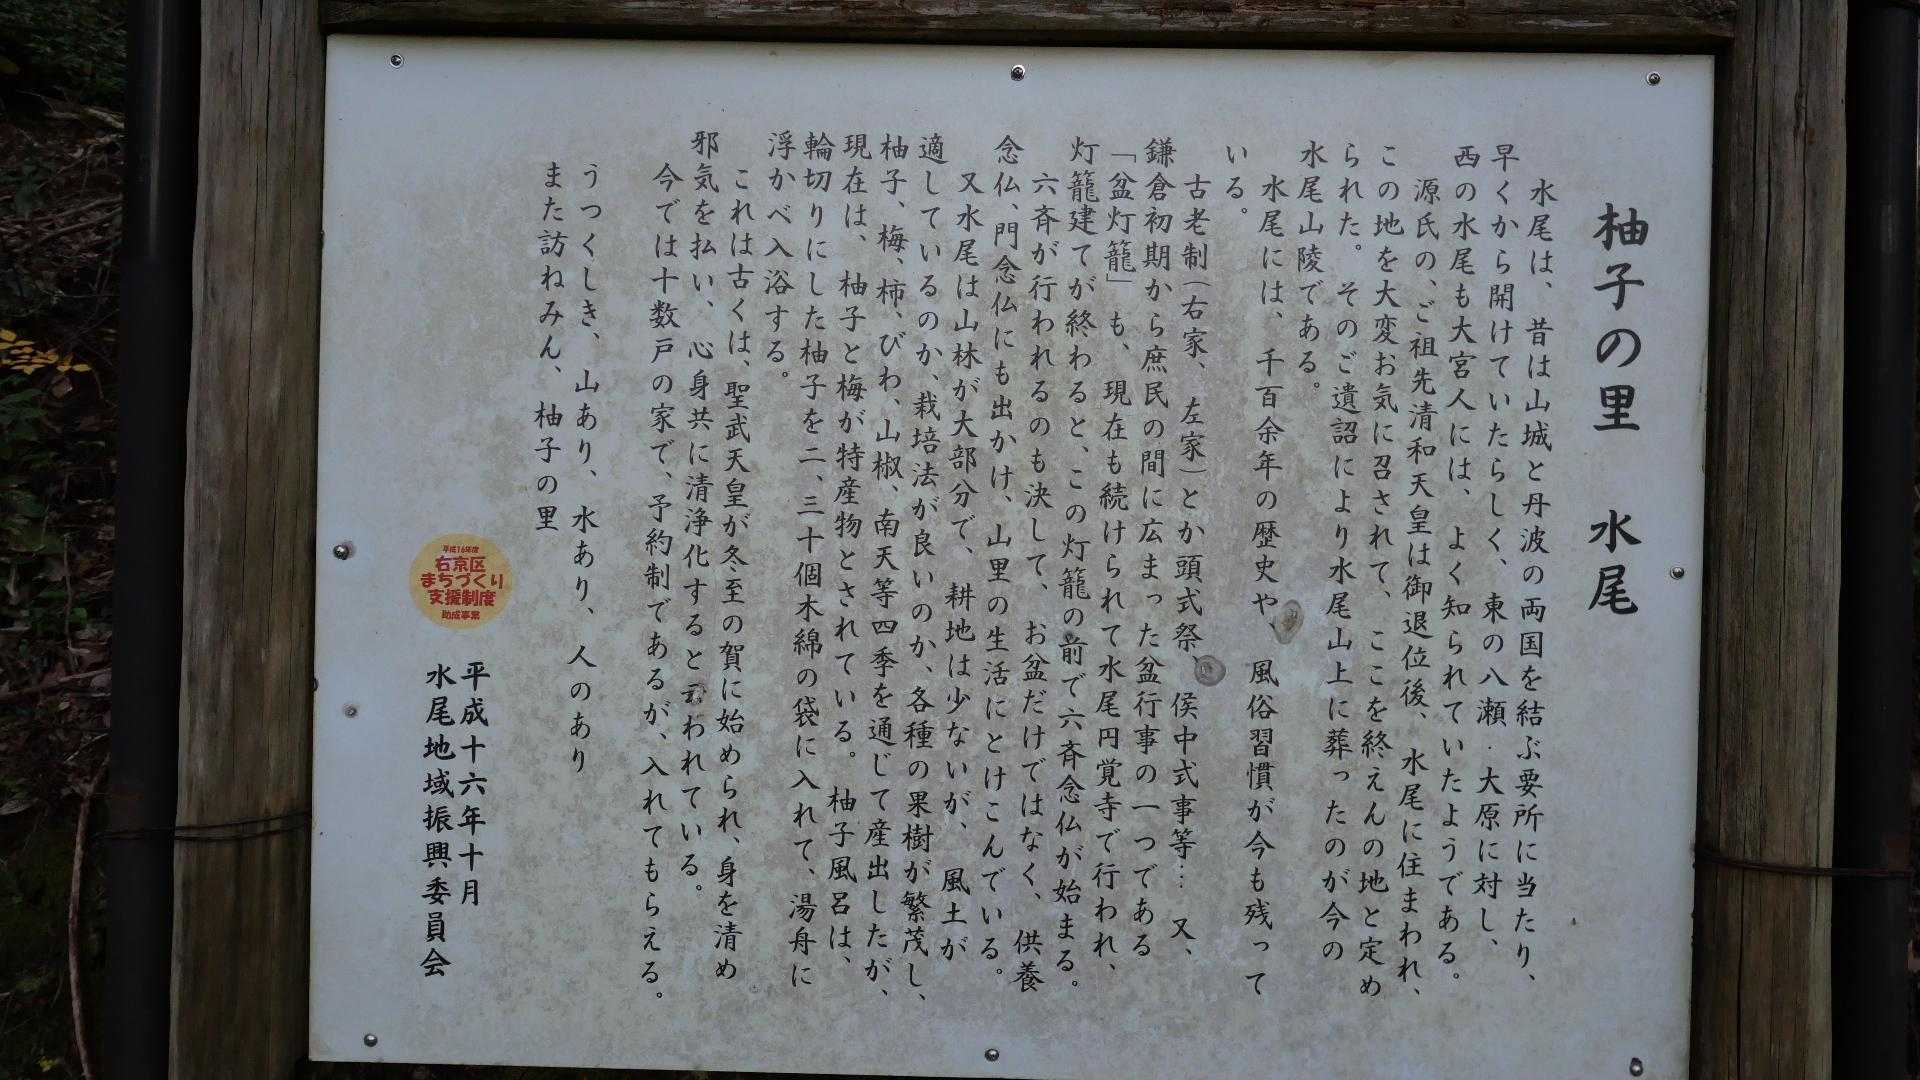 柚子の里　水尾
水尾は、昔は山城と丹波の両国を結ぶ要所に当たり、
早くから開けていたらしく、東の八瀬・大原に対し、
西の水尾も大宮人には、よく知られていたようである。
源氏の、ご祖先清和天皇は御退位後、水尾に住まわれ、
この地を大変お気に召されて、ここを終えんの地と定め
られた。そのご遺詔により水尾山上に葬ったのが今の
水尾山陵である。
水尾には、千百余年の歴史や、風俗習慣が今も残って
いる。
古老制（右家、左家）とか頭式祭、侯中式事等…又、
鎌倉初期から庶民の間に広まった盆行事の一つである
「盆灯籠」も、現在も続けられて水尾円覚寺で行われ、
灯籠建てが終わると、この灯籠の前で六斉念仏が始まる。
六斉が行われるのも決して、お盆だけではなく、供養
念仏、門念仏にも出かけ、山里の生活にとけこんでいる。
又水尾は山林が大部分で、耕地は少ないが、風土が
適しているのか、栽培法が良いのか、各種の果樹が繁茂し、
柚子、梅、柿、びわ、山椒、南天等四季を通じて産出したが、
現在は、柚子と梅が特産物とされている。柚子風呂は、
輪切りにした柚子を二、三十個木綿の袋に入れて、湯舟に
浮かべ入浴する。
これは古くは、聖武天皇が冬至の賀に始められ、身を清め
邪気を払い、心身共に清浄化すると云われている。
今では十数戸の家で、予約制であるが、入れてもらえる。
うつくしき、山あり、水あり、人のあり
また訪ねみん、柚子の里
平成16年度
右京区
まちづくり
支援制度
助成事業
平成十六年十月
水尾地域振興委員会